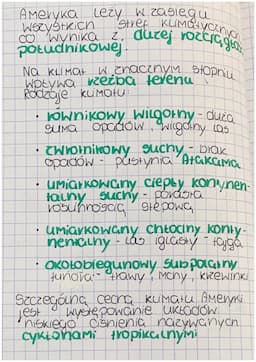 Ameryka leży w zasięgu
wszystkich stref klimatycznych
co wynika z dużej rozciągłości
południkowej.
Na klimat w znacznym stopniu
wpływa rzeźba terenu
Rodzaje klimatu:
• równikowy wilgotny - duża
suma opadów, wilgotny las
• zwrotnikowy suchy - brak
opadów - pustynia Atakama
• umiarkowany ciepły kontynen-
talny suchy - porasta
roślinnością stepową
• umiarkowany chłodny konty-
nentalny - las iglasty - tajga
• okołobiegunowy subpolarny
tundra - trawy, mchy, krzewinki
Szczególną cechą klimatu Ameryki
jest występowanie układów
niskiego ciśnienia nazywanych
cyklonami tropikalnymi